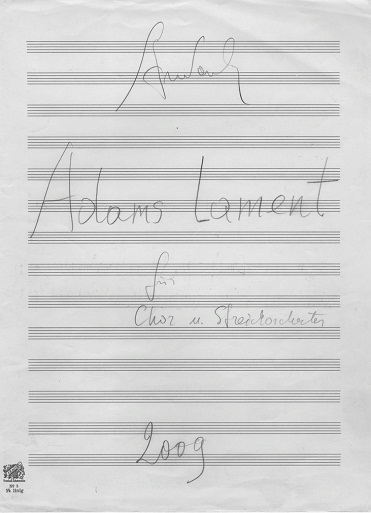 Adams Lament
für
Chor u. Streichorchester
2009